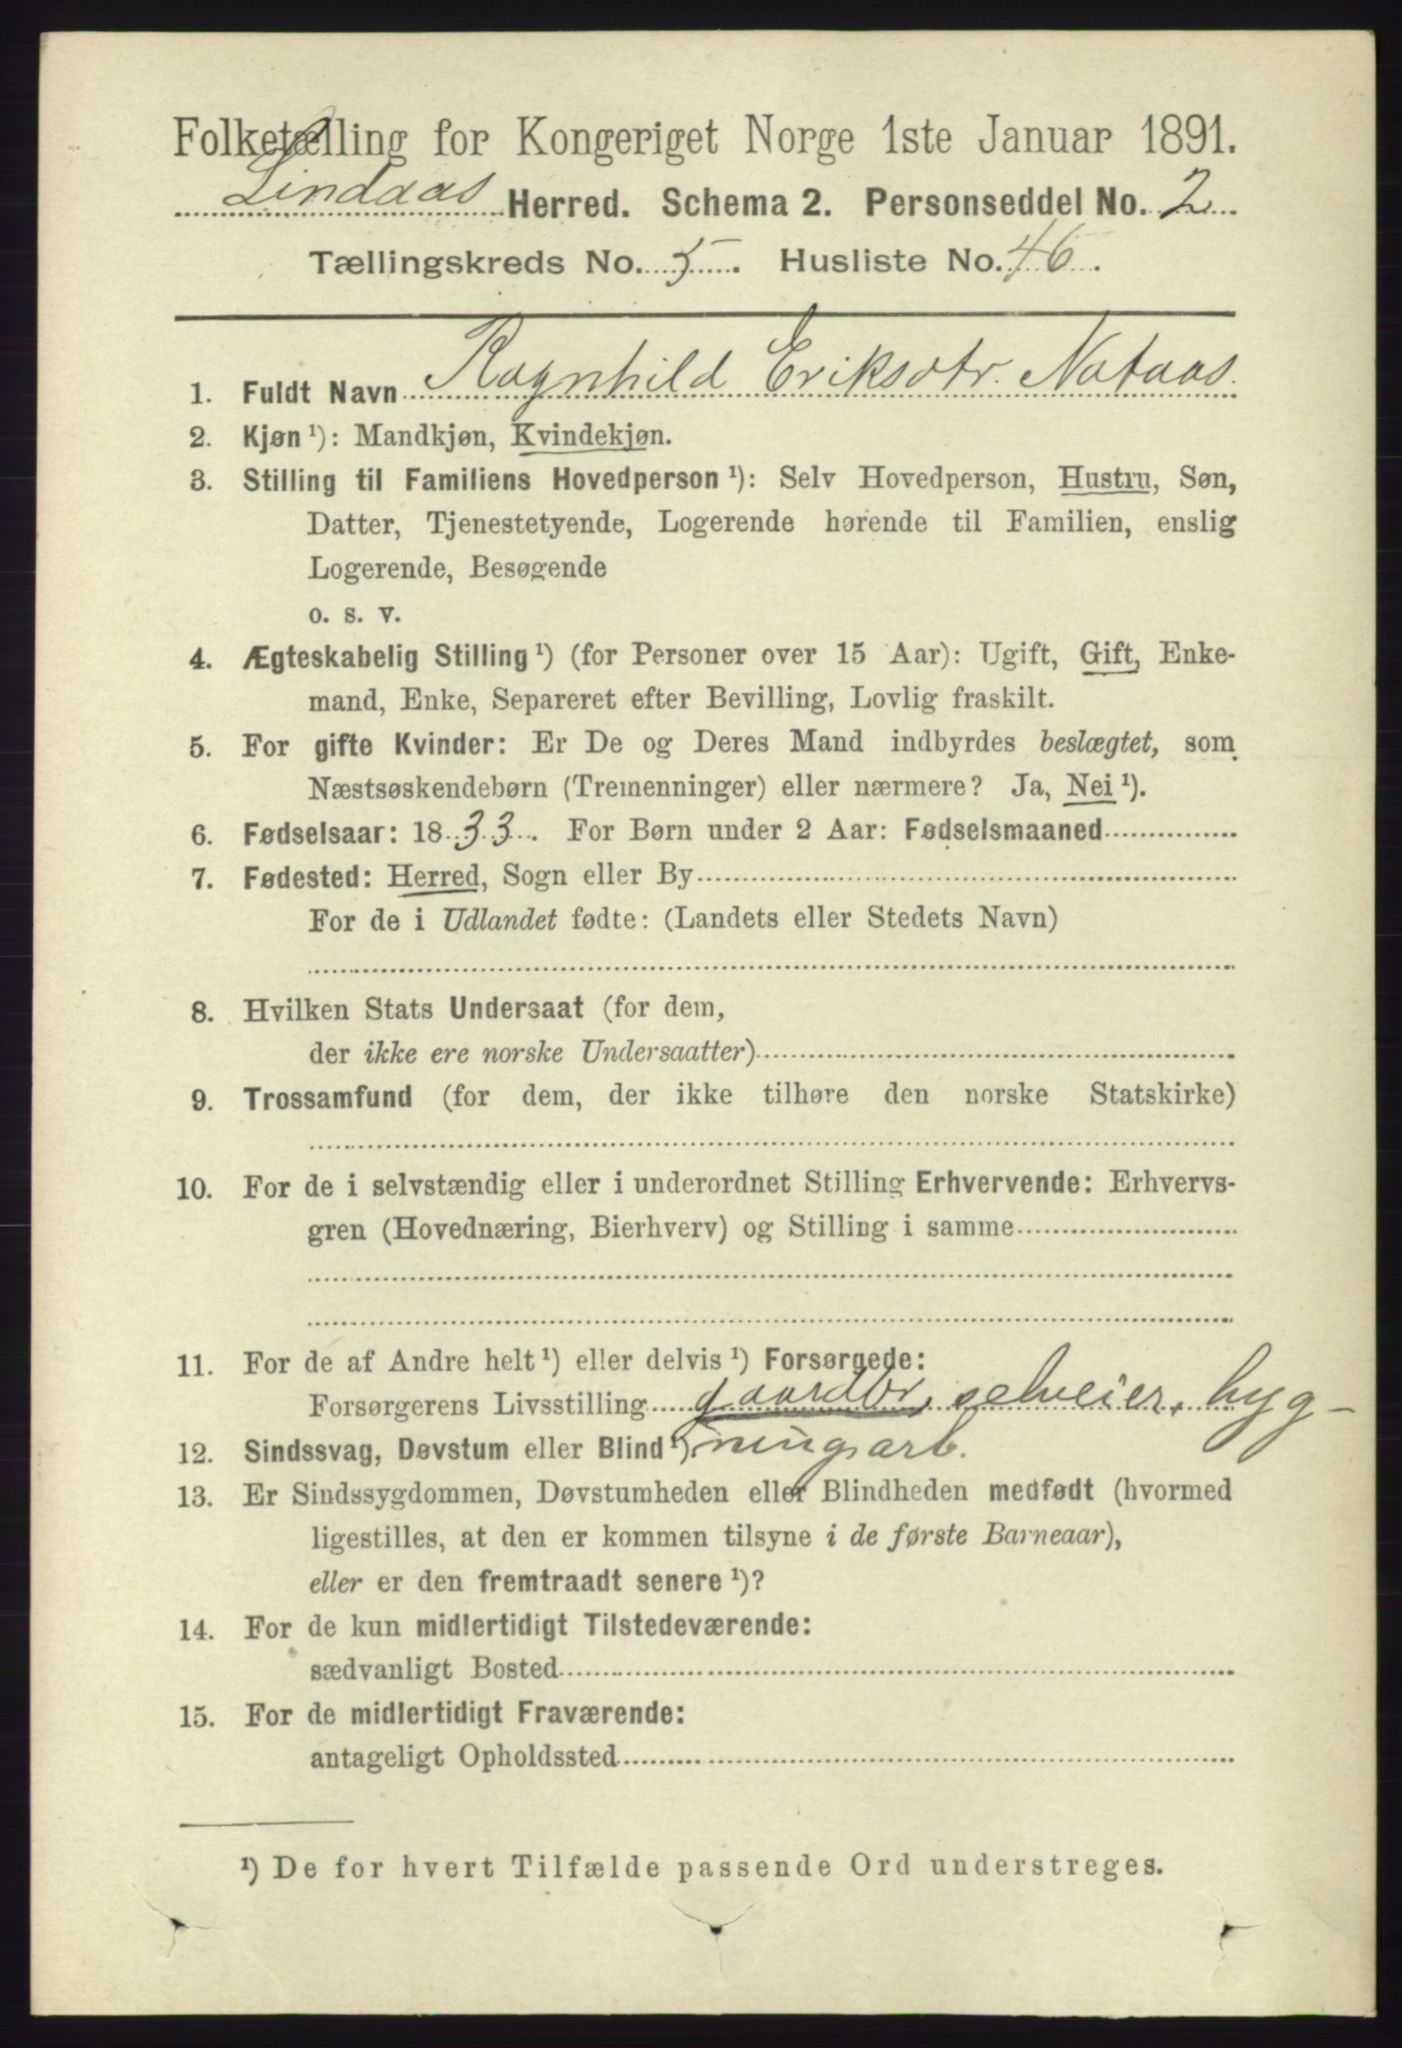 Folketælling for Kongeriget Norge 1ste Januar 1891.
Lindaas Herred. Schema 2. Personseddel No. 2
Tællingskreds No. 5. Husliste No. 46.
1. Fuldt Navn Ragnhild Eriksdtr. Nataas.
2. Kjøn ¹): Mandkjøn, Kvindekjøn.
3. Stilling til Familiens Hovedperson ¹): Selv Hovedperson, Hustru, Søn,
Datter, Tjenestetyende, Logerende hørende til Familien, enslig
Logerende, Besøgende
o. s. v.
4. Ægteskabelig Stilling ¹) (for Personer over 15 Aar): Ugift, Gift, Enke-
mand, Enke, Separeret efter Bevilling, Lovlig fraskilt.
5. For gifte Kvinder: Er De og Deres Mand indbyrdes beslægtet, som
Næstsøskendebørn (Tremenninger) eller nærmere? Ja, Nei ¹).
6. Fødselsaar: 1833. For Børn under 2 Aar: Fødselsmaaned
7. Fødested: Herred, Sogn eller By
For de i Udlandet fødte: (Landets eller Stedets Navn)
8. Hvilken Stats Undersaat (for dem,
der ikke ere norske Undersaatter)
9. Trossamfund (for dem, der ikke tilhøre den norske Statskirke)
10. For de i selvstændig eller i underordnet Stilling Erhvervende: Erhvervs-
gren (Hovednæring, Bierhverv) og Stilling i samme
11. For de af Andre helt ¹) eller delvis ¹) Forsørgede:
Forsørgerens Livsstilling gaardbr, selveier, byg-
12. Sindssvag, Døvstum eller Blind ¹) ningsarb.
13. Er Sindssygdommen, Døvstumheden eller Blindheden medfødt (hvormed
ligestilles, at den er kommen tilsyne i de første Barneaar),
eller er den fremtraadt senere ¹)?
14. For de kun midlertidigt Tilstedeværende:
sædvanligt Bosted
15. For de midlertidigt Fraværende:
antageligt Opholdssted
¹) De for hvert Tilfælde passende Ord understreges.